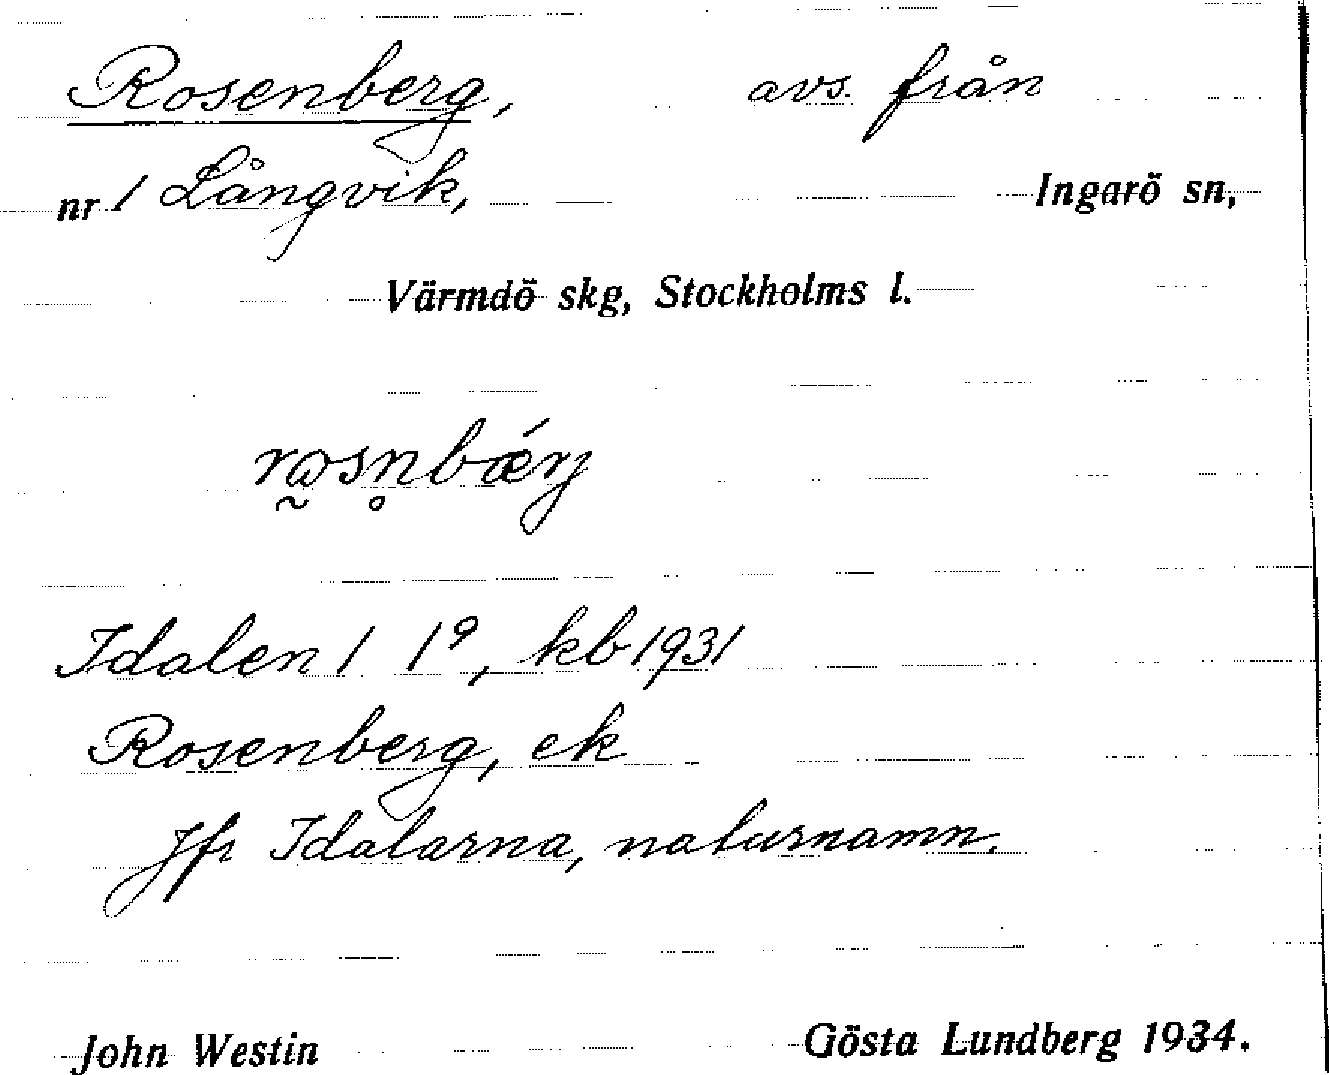 Rosenberg, avs. från
nr 1 Långvik, Ingarö sn,
Värmdö skg, Stockholms l.
Idalen 1 1⁹, kb 1931
Rosenberg, ek
Jfr Idalarna, naturnamn.
John Westin Gösta Lundberg 1934.